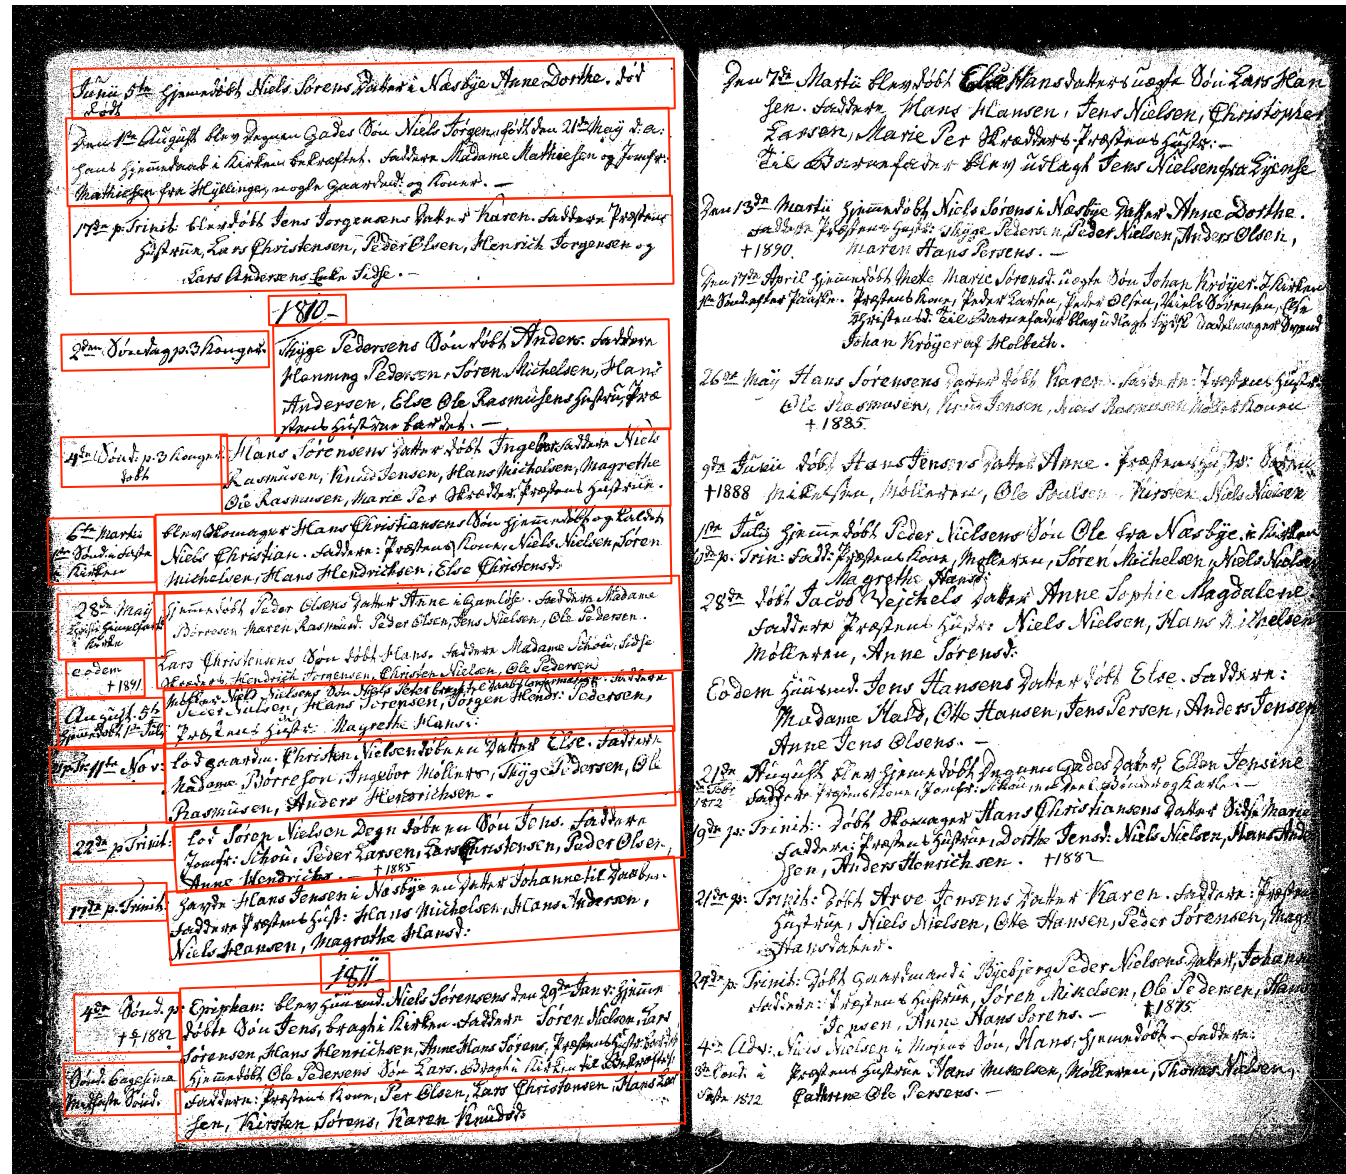 Junii 5te Hjemedöbt Niels Sörens Datter i Næsbÿe Anne Dorthe. död
döbt
Den 1ste August blev Degnen Gades Sön Niels Jörgen, född den 21de Maÿ d: a:
hans Hjemmedaab i Kirken bekræftet. Faddere Madame Mathiesen og Jomfr:
Mathiesen fra Hÿllinge, nogle Gaardmd: og Koner. —
17de p. Trinit: blev döbt Jens Jörgensens Datter Karen. Faddere Præstens
Hustrue, Lars Christensen, Peder Olsen, Henrich Jörgensen og
Lars Andersens Enke Sidse. —
1810
2den Söndag p. 3 Konger. Thÿge Pedersens Sön döbt Anders. Faddere
Henning Pedersen, Sören Michelsen, Hans
Andersen, Else Ole Rasmusens Hustru, Præ
stens Hustrue bar det. —
4de Sönd: p. 3 Konger Hans Sörensens Datter döbt Ingebor Faddere Niels
döbt
Rasmusen, Knud Jensen, Hans Michelsen, Magrethe
Ole Rasmusen, Marie Per Skrædder. Præstens Hustrue.
6te Martii blev Skomager Hans Christiansens Sön hjemmedöbt og kaldet
1ste Sönd: i Faste Niels Christian. Faddere: Præstens Kone, Niels Nielsen, Sören
Kirken Michelsen, Hans Hendrichsen, Else Christensd:
28de Maÿ hjemmedöbt Peder Olsens Datter Anne i Gamlöse. Faddere Madame
Christi Himmelfarts Börresen Maren Rasmusd: Peder Olsen, Jens Nielsen, Ole Pedersen.
i Kirken
eodem Lars Christensens Sön döbt Hans. Faddere Madame Schou, Sidse
†1891 Skræders, Hendrich Jörgensen, Christen Nielsen, Ole Pedersen
August. 5te Möller Niels Nielsens Sön Niels Peter bragt til Daabs Confirmation. Faddere
Hjemmedöbt 1ste Julÿ Peder Nielsen, Hans Sörensen, Jörgen Hendr: Pedersen,
Præstens Hustr: Magrethe Hans:
11te Nov: lod Gaardm. Christen Nielsen döbe en Datter Else. Faddere
Madame Börresen, Ingebor Möllers, Thÿge Pedersen, Ole
Rasmusen, Anders Hendrichsen.
22de p Trinit: lod Sören Nielsen Degn döbe en Sön Jens. Faddere
Jomfr: Schou, Peder Larsen, Lars Christensen, Peder Olsen,
Anne Hendriches. — †1885
17de p. Trinit: havde Hans Jensen i Næsbÿe en Datter Johanne til Daaben.
Faddere Præstens Hust: Hans Michelsen, Hans Andersen,
Niels Hansen, Magrethe Hansd:
1811
4de Sönd. p. Epiphan: blev Huusmd. Niels Sörensens den 29de Janv: hjemme
†1882 döbte Sön Jens, bragt i Kirken. Faddere Sören Nielsen, Lars
Sörensen, Hans Henrichsen, Anne Hans Sörens, Præstens Hustr: bar det
Hjemmedöbt Ole Pedersens Sön Lars. bragt i Kirken til Bekræftels
Midfaste Sönd: Faddere: Præstens Kone, Per Olsen, Lars Christensen, Hans Lar
sen, Kirsten Sörens, Karen Knudsd:
Den 7de Martii blev döbt Else Hansdatters uægte Sön Lars Han
sen. Faddere Hans Hansen, Jens Nielsen, Christopher
Larsen, Marie Per Skrædders. Præstens Hustr: —
Til Barnefader blev udlagt Jens Nielsen fra
Den 13de Martii hjemmedöbt Niels Sörens i Næsbÿe Datter Anne Dorthe.
Faddere Præstens Hustr: Thÿge Pedersen, Peder Nielsen, Anders Olsen,
†1890. Maren Hans Persens. —
Den 17de April hjemmedöbt Mette Marie Sörensd. uægte Sön Johan Kröÿer. I Kirken
1ste Sönd. efter Paaske. Præstens Kone, Peder Larsen, Peder Olsen, Niels Sörensen, Else
Christensd. Til Barnefader blev udlagt Tÿdsk Dadelmager Svend
Johan Kröÿer af Holbech.
26de Maÿ Hans Sörensens Datter döbt Karen. Faddere: Præstens Hustr:
Ole Rasmusen, Knud Jensen, Niels Rasmusen Möller Konen
†1885.
9de Junii döbt Hans Jensens Datter Anne. Præstens Hustr: Sören
†1888 Mikelsen, Mölleren, Ole Poulsen Kirsten Niels Nielsen
1ste Julij hjemmedöbt Peder Nielsens Sön Ole fra Næsbÿe. i Kirken
p. Trin: Fadd: Præstens Kone, Mölleren, Sören Michelsen, Niels Nielsen
Magrethe Hansd:
28de döbt Jacob Vejchels Datter Anne Sophie Magdalene
Faddere Præstens Hustr: Niels Nielsen, Hans Mikelsen
Mölleren, Anne Sörensd:
Eodem Huusmd. Jens Hansens Datter döbt Else. Faddere:
Madame Hald, Otte Hansen, Jens Persen, Anders Jensen
Anne Jens Olsens. —
21de August blev hjemedöbt Degnen Gades Dater Ellen Jensine
1812 Faddere Præstens Kone, Jomfr: Schou,
19de p: Trinit: Döbt Skomager Hans Christiansens Datter Sidse Marie
Faddere: Præstens Hustrue, Dorthe Jensd: Niels Nielsen, Hans Ander
sen, Anders Henrichsen. †1882
21de p: Trinit: Döbt Arve Jensens Datter Karen. Faddere: Præstens
Hustrue, Niels Nielsen, Otte Hansen, Peder Sörensen, Magr
Hansdatter.
24de p: Trinit: Döbt Gaardmand i Bÿebjerg Peder Nielsens Datter, Johanne
Faddere: Præstens Hustrue, Sören Mikelsen, Ole Pedersen, Hans
Jensen, Anne Hans Sörens. — †1875
4de Adv: Niels Nielsen i Mosens Sön, Hans, hjemedöbt — Faddere:
Sönd. i Præstens Hustrue Hans Mikelsen, Mölleren, Thomas Nielsen,
Faste 1812 Cathrine Ole Persens. —